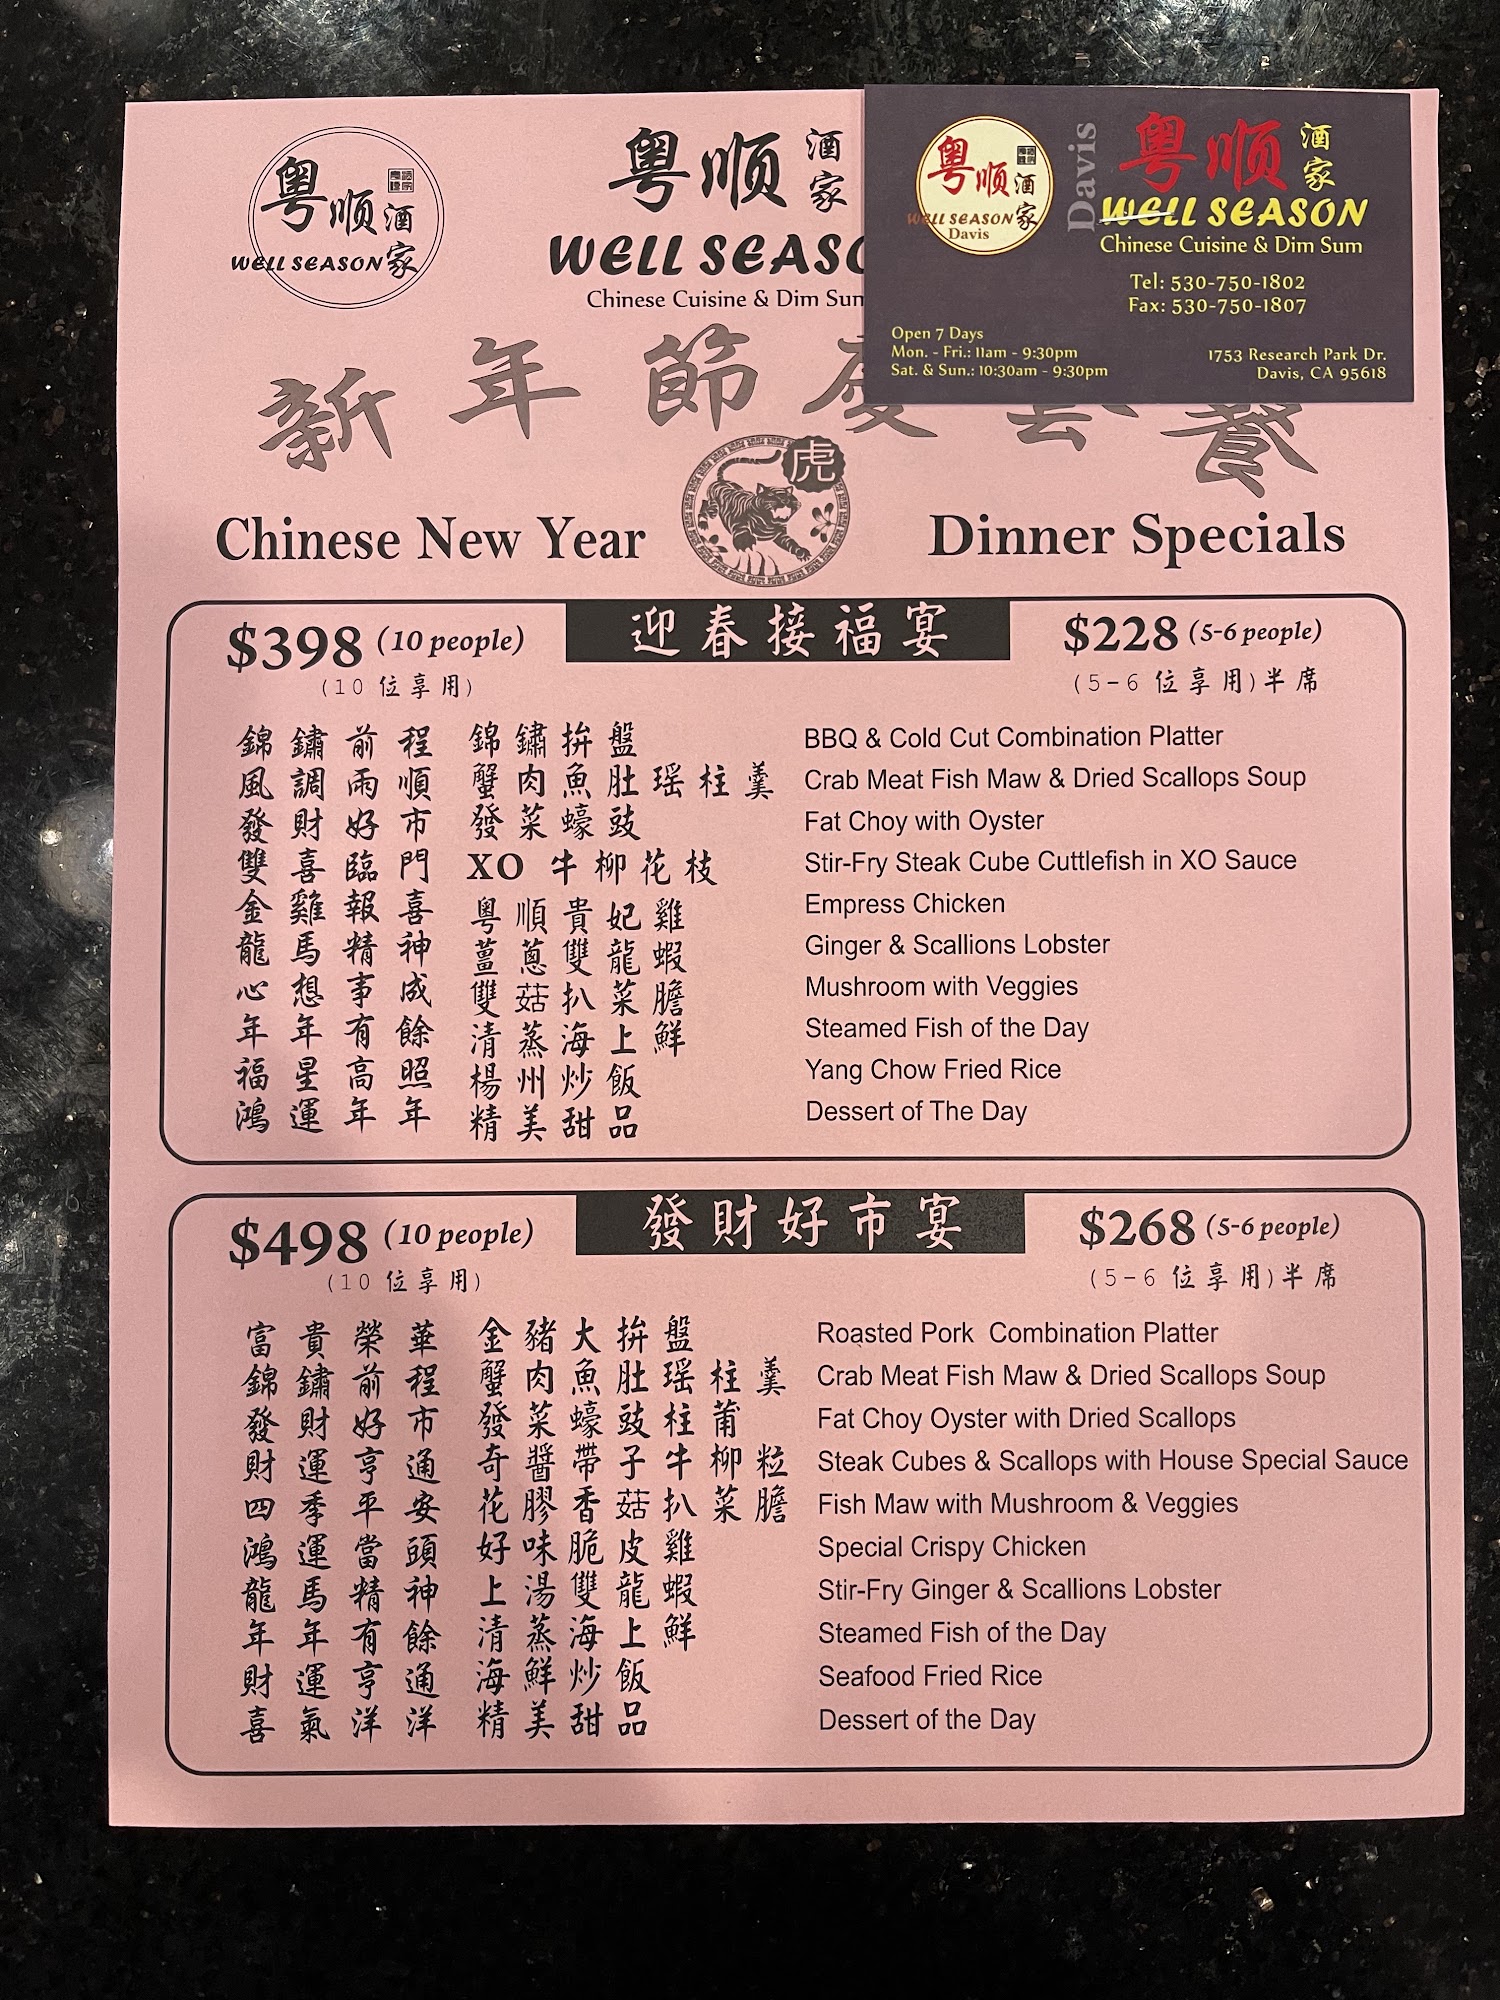 粤顺酒家
WELL SEASON
粤顺酒家
WELL SEASO
Chinese Cuisine & Dim Sum
粤顺酒家
WELL SEASON
Davis
Davis
粤顺酒家
WELL SEASON
Chinese Cuisine & Dim Sum
Tel: 530-750-1802
Fax: 530-750-1807
Open 7 Days
Mon. - Fri.: 11am - 9:30pm
Sat. & Sun.: 10:30am - 9:30pm
1753 Research Park Dr.
Davis, CA 95618
新年節慶套餐
虎
Chinese New Year Dinner Specials
$398 (10 people) 迎春接福宴 $228 (5-6 people)
(10 位享用) (5-6 位享用)半席
錦鏽前程 錦鏽拚盤 BBQ & Cold Cut Combination Platter
風調雨順 蟹肉魚肚瑶柱羹 Crab Meat Fish Maw & Dried Scallops Soup
發財好市 發菜蠔豉 Fat Choy with Oyster
雙喜臨門 XO 牛柳花枝 Stir-Fry Steak Cube Cuttlefish in XO Sauce
金雞報喜 粤順貴妃雞 Empress Chicken
龍馬精神 薑蔥雙龍蝦 Ginger & Scallions Lobster
心想事成 雙菇扒菜膽 Mushroom with Veggies
年年有餘 清蒸海上鮮 Steamed Fish of the Day
福星高照 楊州炒飯 Yang Chow Fried Rice
鴻運年年 精美甜品 Dessert of The Day
$498 (10 people) 發財好市宴 $268 (5-6 people)
(10 位享用) (5-6 位享用)半席
富貴榮華 金豬大拚盤 Roasted Pork Combination Platter
錦鏽前程 蟹肉魚肚瑶柱羹 Crab Meat Fish Maw & Dried Scallops Soup
發財好市 發菜蠔豉柱莆 Fat Choy Oyster with Dried Scallops
財運亨通 奇醬帶子牛柳粒 Steak Cubes & Scallops with House Special Sauce
四季平安 花膠香菇扒菜膽 Fish Maw with Mushroom & Veggies
鴻運當頭 好味脆皮雞 Special Crispy Chicken
龍馬精神 上湯雙龍蝦 Stir-Fry Ginger & Scallions Lobster
年年有餘 清蒸海上鮮 Steamed Fish of the Day
財運亨通 海鮮炒飯 Seafood Fried Rice
喜氣洋洋 精美甜品 Dessert of the Day